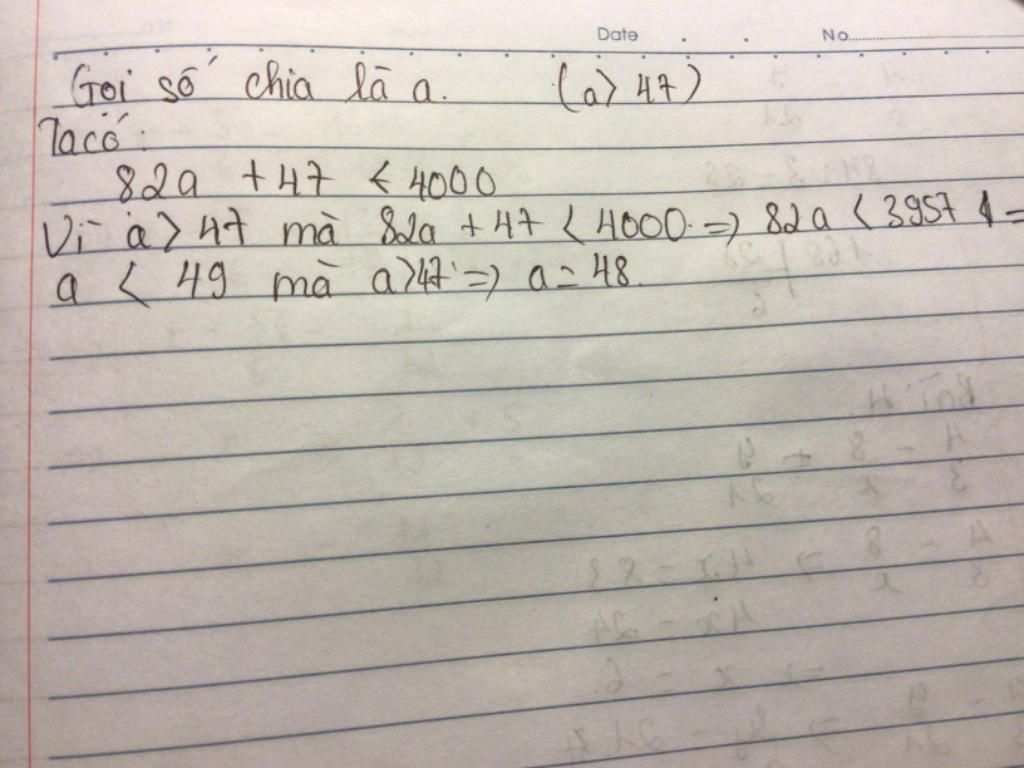 Date No.
Gọi số chia là a. (a > 47)
Ta có:
82a + 47 < 4000
Vì a > 47 mà 82a + 47 < 4000 => 82a < 3957
a < 49 mà a > 47 => a = 48.